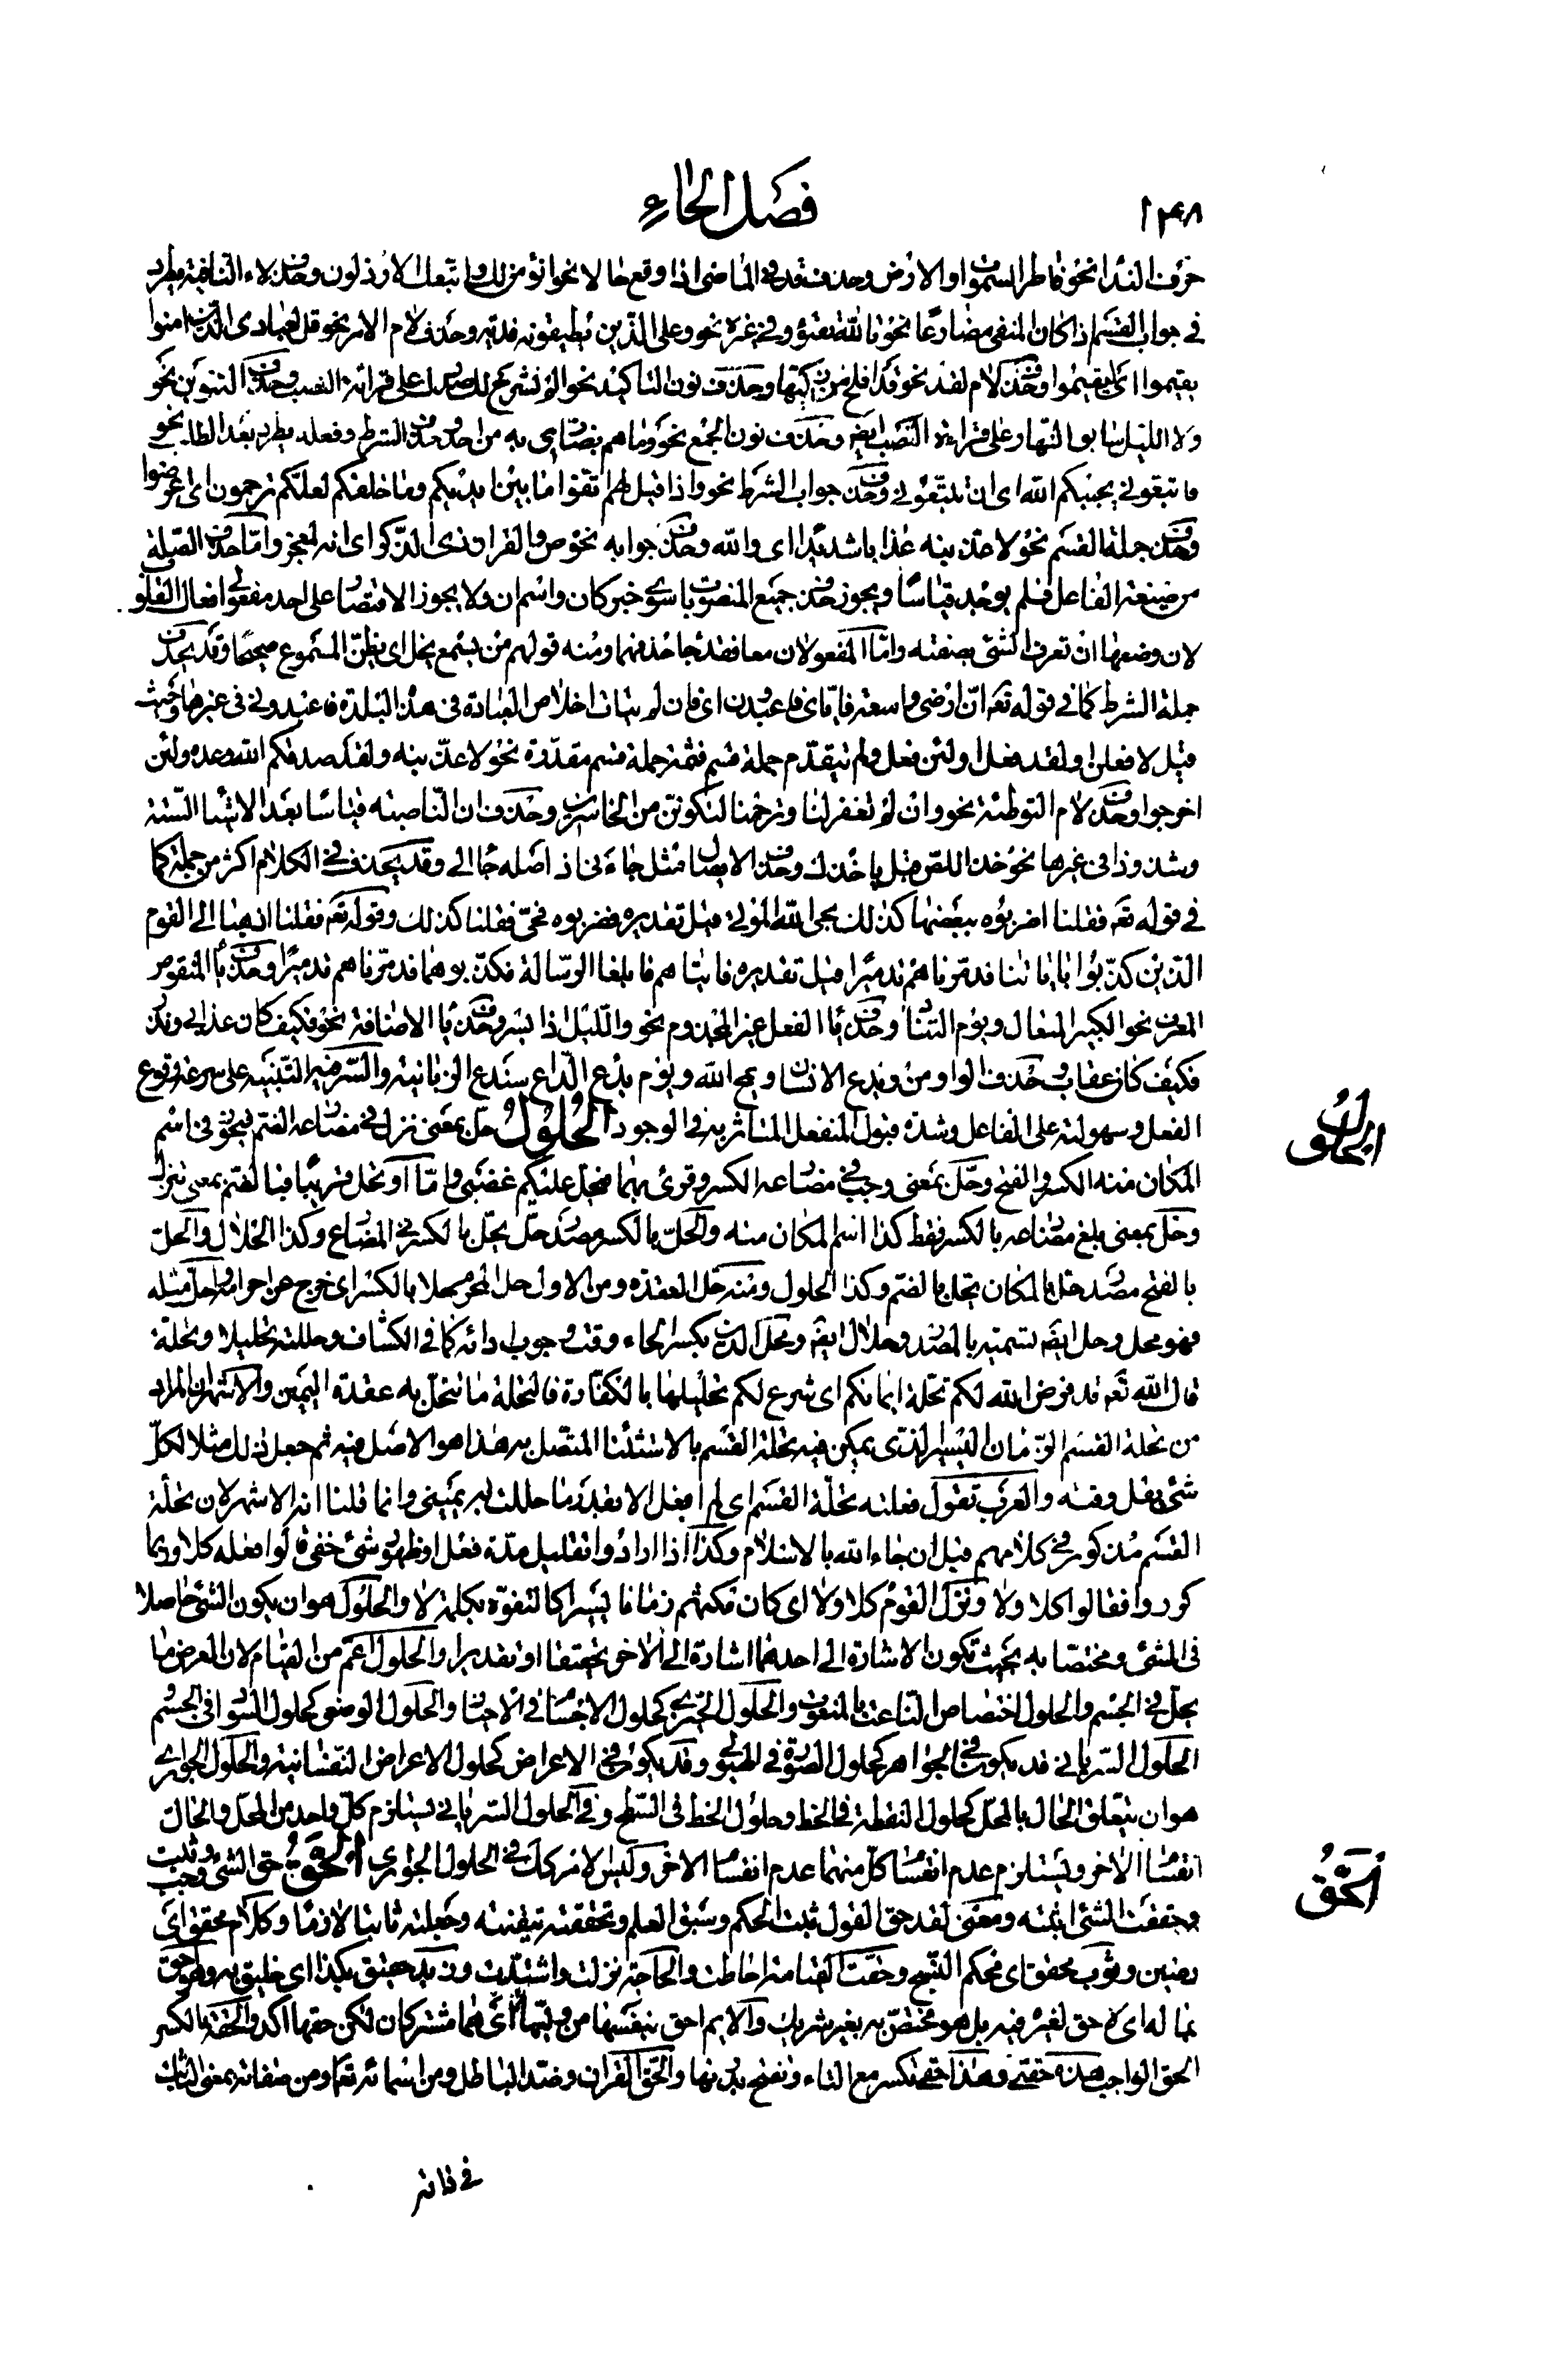 ١٤٨
فصل الحاء
حرف النداء نحو فاطر السموات والارض وحذف قد فى الماضى اذا وقع حالا نحو انؤمن لك واتبعك الارذلون وحذف لاء النافية مطرد
فى جواب القسم اذا كان المنفى مضارعا نحو تالله تفتؤ وفى غيره نحو وعلى الذين يطيقونه فدية وحذف لام الامر نحو قل لعبادى الذين امنوا
يقيموا اى ليقيموا وحذف لام لقد نحو قد افلح من زكيها وحذف نون التاكيد نحو الم نشرح لك صدرك على قرائة النصب وحذف التنوين نحو
ولا الليل سابق النهار وعلى قرائة النصب ايضه وحذف نون الجمع نحو وما هم بضارى به من احد وحذف الشرط وفعله يطرد بعد الطلب نحو
فاتبعونى يحببكم الله اى ان تتبعونى وحذف جواب الشرط نحو واذا قيل لهم اتقوا ما بين ايديكم وما خلفكم لعلكم ترحمون اى اعرضوا
وحذف جملة القسم نحو لاعذبنه عذابا شديدا اى والله وحذف جوابه نحو ص والقران ذى الذكر اى انه لمعجز واما حذف الصلة
من صيغة الفاعل فلم يوجد قياسا ويجوز حذف جميع المنصوبات سوى خبر كان واسم ان ولا يجوز الاقتصار على احد مفعولى افعال القلوب
لان وضعها ان تعرف الشئ بصفته واما المفعولان معا فقد جا حذفهما ومنه قولهم من يسمع يخل اى يظن المسموع صحيحا وقد يحذف
جملة الشرط كما فى قوله تعه ان ارضى واسعة فاياى فاعبدون اى فان لم يتات اخلاص العبادة فى هذه البلدة فاعبدونى فى غيرها وحيث
قيل لافعلن او لقد فعل او لئن فعل ولم يتقدم جملة قسم فثمة جملة قسم مقدرة نحو لاعذبنه ولقد صدقكم الله وعده ولئن
اخرجوا وحذف لام التوطئة نحو وان لم تغفر لنا وترحمنا لنكونن من الخاسرين وحذف ان الناصبة قياسا بعد الاشيا الستة
وشذوذا فى غيرها نحو خذ اللص قبل ياخذك وحذف الايصال مثل جاءنى اذ اصله جا الى وقد يحذف فى الكلام اكثر من جملة كما
فى قوله تعه فقلنا اضربوه ببعضها كذلك يحى الله الموتى قيل تقديره فضربوه فحيى فقلنا كذلك وقوله تعه فقلنا اذهبا الى القوم
الذين كذبوا باياتنا فدمرناهم تدميرا قيل تقديره فاتياهم فابلغا الرسالة فكذبوهما فدمرناهم تدميرا وحذف يا المنقوص
المعرف نحو الكبير المتعال ويوم التناد وحذف يا الفعل غير المجزوم نحو والليل اذا يسر وحذف يا الاضافة نحو فكيف كان عذابى ونذر
فكيف كان عقاب وحذف الواو من ويدع الانسان ويمح الله ويوم يدع الداع سندع الزبانية والسر فيه التنبيه على سرعة وقوع
الفعل وسهولته على الفاعل وشدة قبول المنفعل المتاثر به فى الوجود الحلول حل بمعنى نزل فى مضارعه الضم فيجوز فى اسم
المكان منه الكسر والفتح وحل بمعنى وجب فى مضارعه الكسر وقرئ بهما فيحل عليكم غضبى واما او تحل قريبا فبالضم بمعنى تنزل
وحل بمعنى بلغ مضارعه بالكسر فقط كذا اسم المكان منه والحل بالكسر مصدر حل يحل بالكسر فى المضارع وكذا الحلال والحل
بالفتح مصدر حل بالمكان يحل بالضم وكذا الحلول ومنه حل العقدة ومن الاول حل المحرم يحل حلا بالكسر اى خرج عن احرامه واحل مثله
فهو محل وحل ايضه تسمية بالمصدر وحلال ايضه ومحل الدين بكسر الحاء وقت وجوب ادائه كما فى الكشاف وحللته تحليلا وتحلة
قال الله تعه قد فرض الله لكم تحلة ايمانكم اى شرع لكم تحليلها بالكفارة فالتحلة ما تنحل به عقدة اليمين والاشهر ان المراد
من تحلة القسم الزمان اليسير الذى يمكن فيه تحلة القسم بالاستثناء المتصل به هذا هو الاصل فيه ثم جعل ذلك مثلا لكل
شئ يقل وقته والعرب تقول فعلته تحلة القسم اى لم افعل الا بقدر ما حللت به يمينى وانما قلنا انه الاشهر لان تحلة
القسم مذكور فى كلامهم قبل ان جاء الله بالاسلام وكذا اذا ارادوا تقليل مدة فعل او ظهور شئ خفى قالوا فعله كلا وربما
كرروا فقالوا كلا ولا ونزل القوم كلا ولا اى كان مكثهم زمانا يسيرا كالتفوه بكلمة لا والحلول هو ان يكون الشئ حاصلا
فى الشئ ومختصا به بحيث تكون الاشارة الى احدهما اشارة الى الاخر تحقيقا او تقديرا والحلول اعم من القيام لان العرض مما
يحل فى الجسم والحلول اختصاص الناعت بالمنعوت والحلول الحيزى كحلول الاجسام فى الاحياز والحلول الوضعى كحلول السواد فى الجسم
الحلول السريانى قد يكون فى الجواهر كحلول الصورة فى الهيولى وقد يكون فى الاعراض كحلول الاعراض النفسانية والحلول الجوارى
هو ان يتعلق الحال بالمحل كحلول النقطة فى الخط وحلول الخط فى السطح وفى الحلول السريانى يستلزم كل واحد من المحل والحال
انقسام الاخر ويستلزم عدم انقسام كل منهما عدم انقسام الاخر وليس الامر كذلك فى الحلول الجوارى الحق حق الشئ وجب وثبت
وحققت الشئ اثبته ومعنى لقد حق القول ثبت الحكم وسبق العلم وتحققته تيقنته وجعلته ثابتا لازما وكلام محقق اى
رصين وثوب محقق اى محكم النسج وحقت القيامة احاطت والحاجة نزلت واشتدت وزيد حقيق بكذا اى خليق به وهو احق
بماله اى لا حق لغيره فيه بل هو مختص به بغير شريك والايم احق بنفسها من وليها اى هما مشتركان لكن حقها اكد والحقة بالكسر
الحق الواجب هذه حقتى وهذا حقى تكسر مع التاء وتفتح بدونها والحق القران وضد الباطل ومن اسمائه تعه او من صفاته بمعنى الثابت
فى ذاته
الحلول
الحق